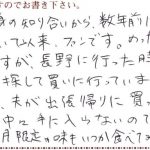 すのでお書き下さい。
の知り合いから、数年前に
いて以来、ファンです。めった
ますが、長野に行った時
探して買いに行っていま
、夫が出張帰りに買っ
中々手に入らないので
月限定の味もいつか食べて